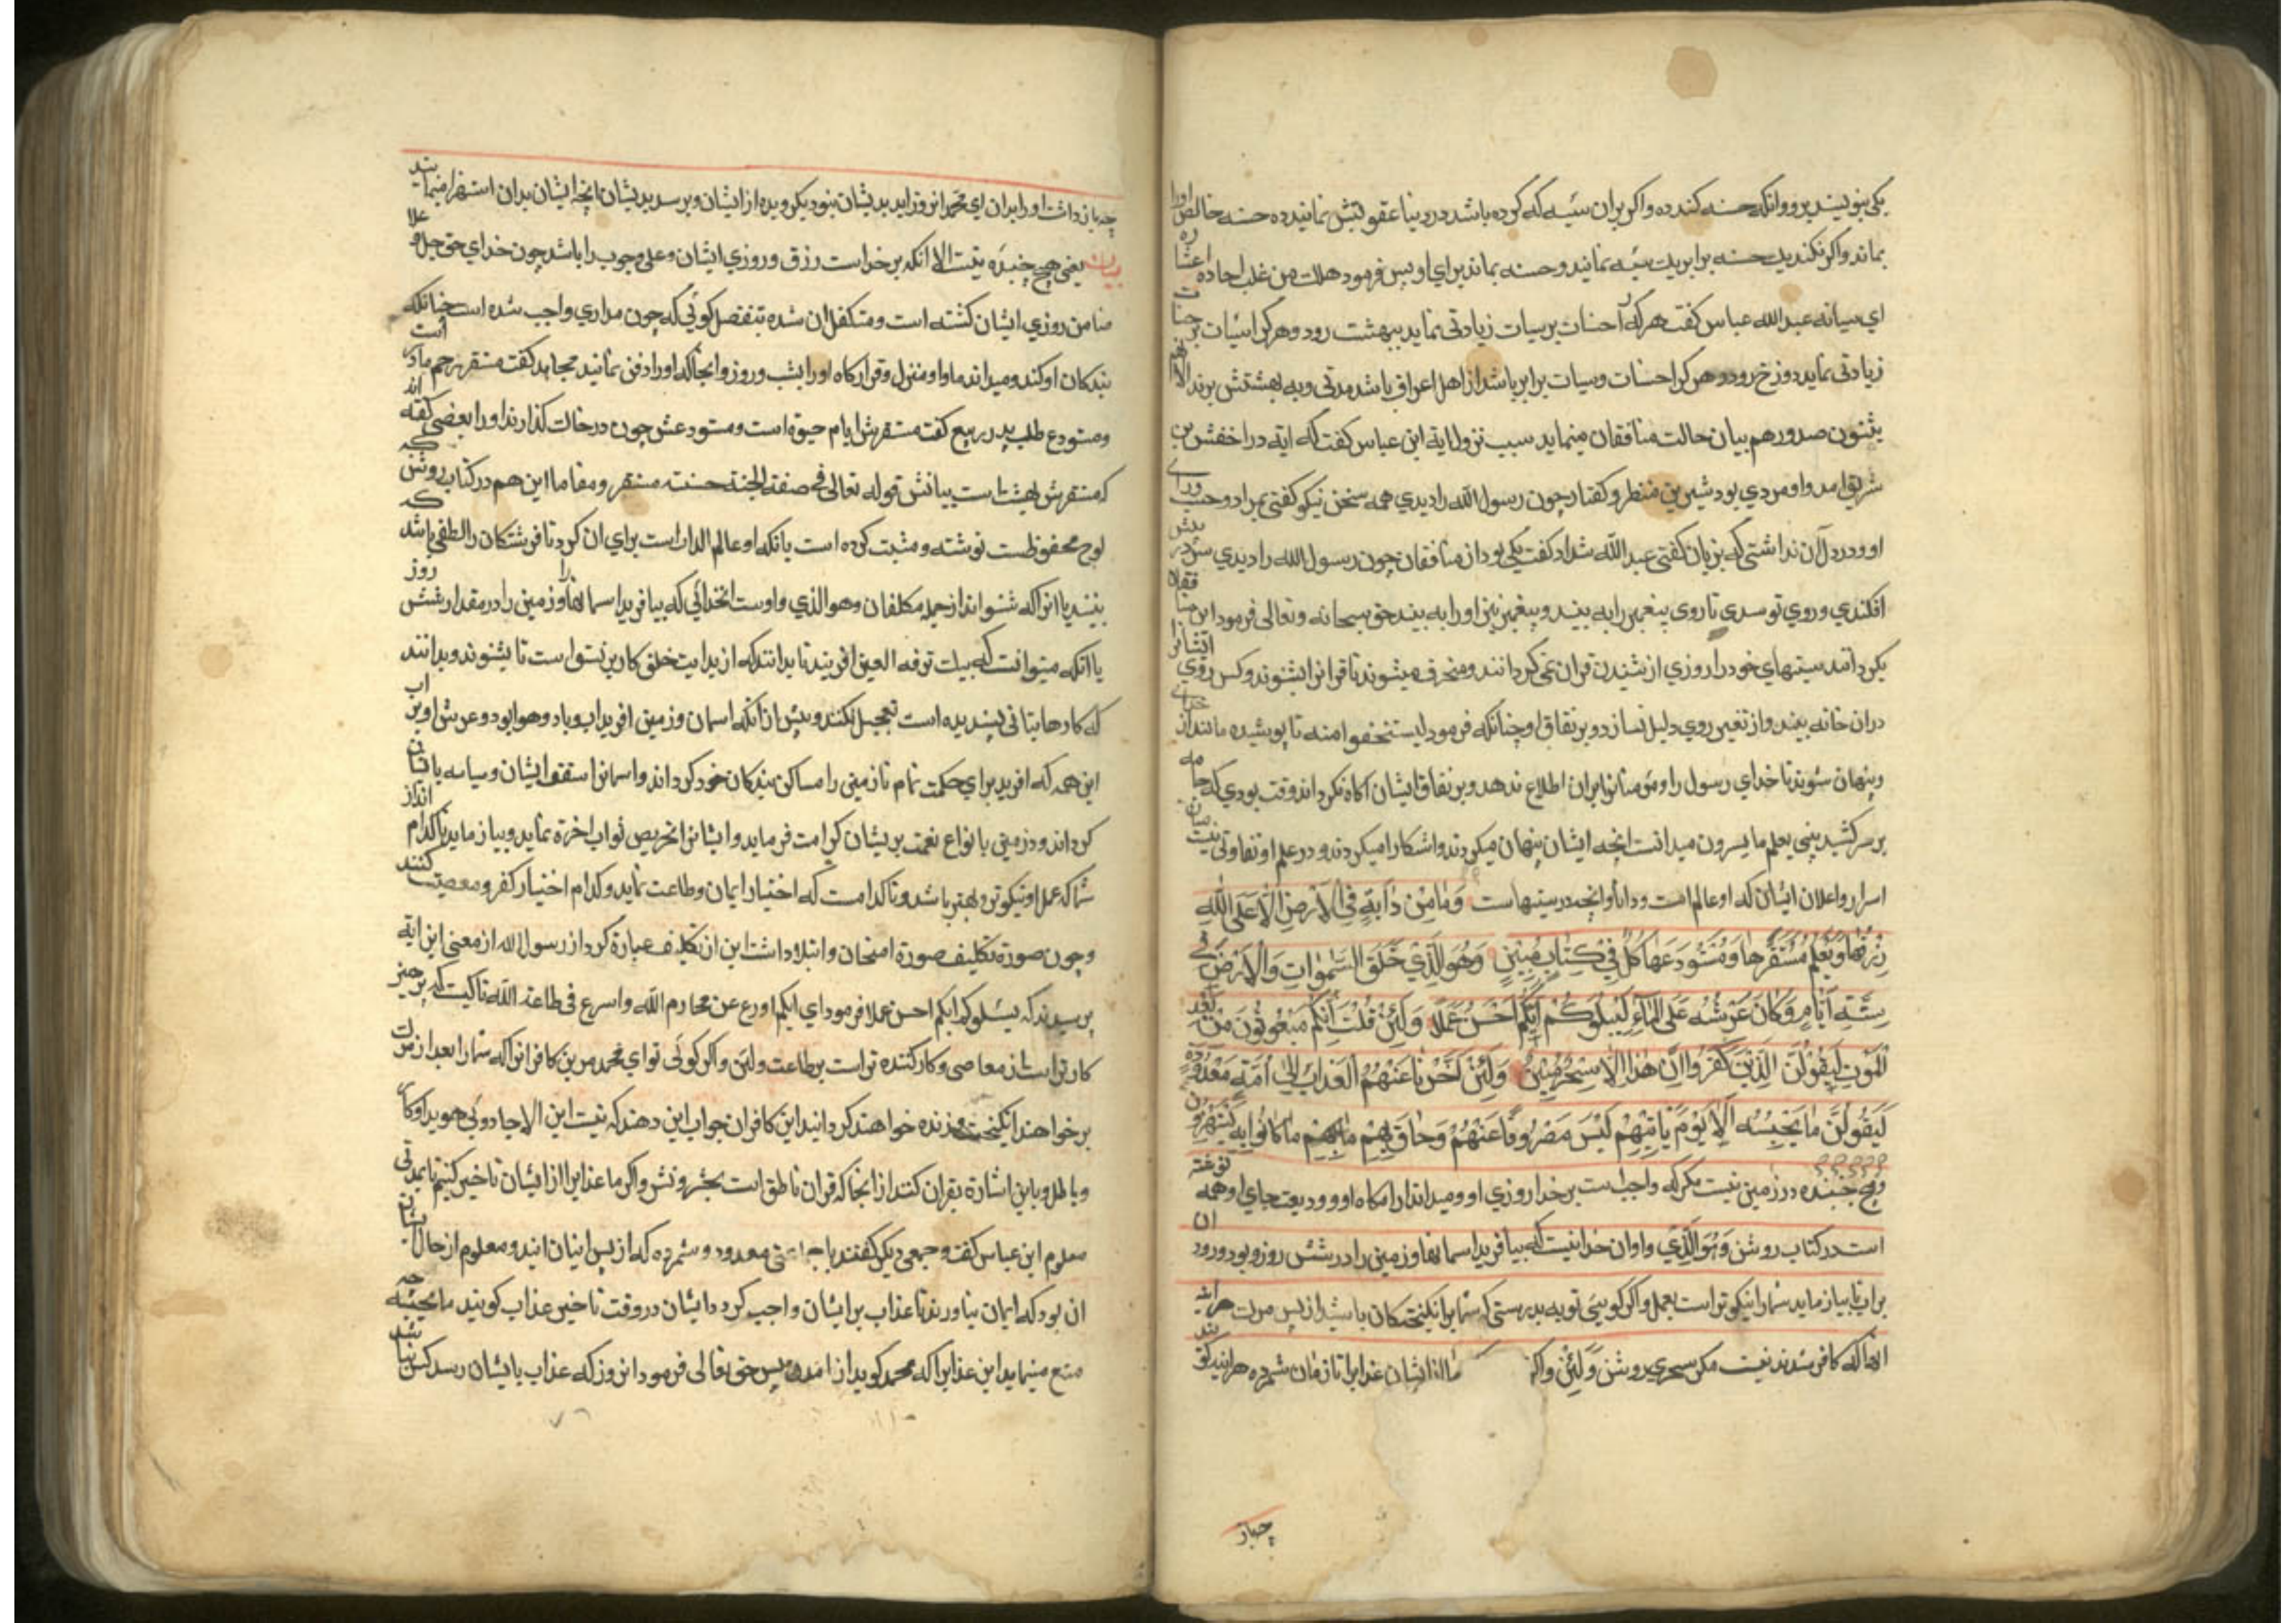 یکی بنویسند برو وانکه حسنه کند ده واکر بران سیئه که کرده باشد در دنیا عقوبتش نمایند ده حسنه خالص اورا
بماند واکر نکند یك حسنه برابر یك سیئه نمایند و حسنه بماند برای او پس فرمود هلك من غلب احاده اعشاره
ای سیانه عبدالله عباس کفت هر که را حسنات بر سیات زیادتی نماید ببهشت رود وهر کرا سیئات بر حسنات
زیادتی نماید دوزخ رود وهر کرا حسنات وسیات برابر باشد از اهل اعراف باشد مدتی وبه بهشتش برند الا انهم
یثنون صدورهم بیان حالت منافقان مینماید سبب نزول ایة ابن عباس کفت که ایة در اخفش بن
شریق امد واو مردی بود شیرین منظر وکفتار چون رسول الله را دیدی همه سخن نیکو کفتی بمراد وحب ورای
او ودر دل آن نداشتی که بزبان کفتی عبد الله شداد کفت یکی بود از منافقان چون رسول الله را دیدی سر در پیش
افکندی وروی تو سدی تا روی پیغمبر را به بیند وپیغمبر نیز اورا به بیند حق سبحانه وتعالی فرمود این منافقان
بکردانند سینهای خود را روزی از شیندن قران نمی کردانند ومنحرف میشوند تا قرانرا بشنوند وکس روی ایشانرا
دران خانه بیند واز تغیر روی دلیل نسازد وبر نفاق او چنانکه فرمود لیستخفوا منه تا پوشیده مانند از خدای
وپنهان شوند تا خدای رسول را ومؤمنانرا بران اطلاع ندهد وبر نفاق ایشان اکاه نکرداند وقت بودی که جامه
بر سر کشید بنی یعلم ما یسرون میدانست انچه ایشان پنهان میکردند واشکارا میکردند ودر علم او تفاوتی نیست میان
اسرار واعلان ایشان که او عالم است ودانا وانچه در سینهاست وَمَا مِنْ دَابَّةٍ فِي الْأَرْضِ إِلَّا عَلَى اللَّهِ
رِزْقُهَا وَيَعْلَمُ مُسْتَقَرَّهَا وَمُسْتَوْدَعَهَا كُلٌّ فِي كِتَابٍ مُبِينٍ وَهُوَ الَّذِي خَلَقَ السَّمَوَاتِ وَالْأَرْضَ فِي
سِتَّةِ أَيَّامٍ وَكَانَ عَرْشُهُ عَلَى الْمَاءِ لِيَبْلُوَكُمْ أَيُّكُمْ أَحْسَنُ عَمَلًا وَلَئِنْ قُلْتَ أَنَّكُمْ مَبْعُوثُونَ مِنْ بَعْدِ
الْمَوْتِ لَيَقُولَنَّ الَّذِينَ كَفَرُوا إِنْ هَذَا إِلَّا سِحْرٌ مُبِينٌ وَلَئِنْ أَخَّرْنَا عَنْهُمُ الْعَذَابَ إِلَى أُمَّةٍ مَعْدُودَةٍ
لَيَقُولُنَّ مَا يَحْبِسُهُ أَلَا يَوْمَ يَأْتِيهِمْ لَيْسَ مَصْرُوفًا عَنْهُمْ وَحَاقَ بِهِمْ مَا كَانُوا بِهِ يَسْتَهْزِؤُنَ
وهیچ جنبنده در زمین نیست مکر که واجب است بر خدا روزی او ومیداند ارامکاه او وودیعت جای او همه نوشته
است در کتاب روشن وَهُوَ الَّذِي واوان خدائیست که بیافرید اسمانها وزمین را در شش روز وبود ورود ان
براب تا بیازماید شمارا نیکوتر است بعمل واکر کویی توبه بدرستی که شما برانکیختکان باشید از پس مرك هراینه
انها که کافر شدند نیست مکر سحری روشن وَلَئِنْ واکر ما از ایشان عذابرا تا زمان شمرده هراینه کویند
چه باز
چه باز داشت اورا بدان ای محمد انروز اید بدیشان نبود بکردیده از ایشان وبرسد بدیشان انچه ایشان بدان استهزا مینمایند
بیان یعنی هیچ جنبنده نیست الا انکه بر خداست رزق وروزی ایشان وعلی وجوب را باشد چون خدای حق جل وعلا
ضامن روزی ایشان کشته است ومتکفل ان شده بتفضل کوئی که چون مداری واجب شده است چنانکه
بندکان او کند ومیداند ماوا ومنزل وقرارکاه اورا بشب وروز وانجا که اورا دفن نمایند مجاهد کفت مستقر رحم مادر است
ومستودع طلب پدر ربیع کفت مستقرش ایام حیوة است ومستودعش چون در خاك کذارند اورا بعضی کفته اند
که مستقرش بهشت است بیانش قوله تعالی فی صفة الجنة حسنت مستقرا ومقاما این هم در کتاب روشن که
لوح محفوظست نوشته ومثبت کرده است یا نکه او عالم الذات است برای ان کرد تا فرشتکان را لطفی باشد که
بینند یا انرا که شنواند از جمله مکلفان وهو الذی واوست انخدائی که بیافرید اسمانها را وزمین را در مقدار شش روز
یا انکه میتوانست که بیك ترفه العین افریند تا بدانند که از بدایت خلق کار بر نیتو است تا بشنوند وبدانند
که کارها بتانی پسندیده است تعجیل نکنند وپیش از انکه اسمان وزمین افرید اب وباد وهوا بود وعرش او بر اب
این همه که افرید برای حکمت تمام تا زمین را مساکن بندکان خود کرداند واسمانرا سقف ایشان وسایه بافتان
کرداند ودر زمین بانواع نعمت بریشان کرامت فرماید وایشانرا تحریص ثواب اخرة نماید وبیازماید تا کدام انداز
شما که عمل او نیکوتر وبهتر باشد وتا کدامست که اختیار ایمان وطاعت نماید وکدام اختیار کفر ومعصیت کنند
وچون صورة تکلیف صورة امتحان وابتلا داشت این از تکلیف عبارة کرد از رسول الله از معنی این ایه
پرسیدند که لیبلوکم ایکم احسن عملا فرمود ای ایکم اورع عن محارم الله واسرع فی طاعة الله تا کیست که پرهیز
کارتر است از معاصی وکار کننده تر است بر طاعت ولئن واکر کوئی تو ای محمد مرین کافرانرا که شمارا بعد از مرك
بر خواهند انکیخت وزنده خواهند کردانید این کافران جواب این دهند که نیست این الا جادوئی هویدا وکار
وباطل وباین اشارة بقران کنند از انجا که قران ناطق است بحشر ونشر واکر ما عذابرا از ایشان تاخیر کنیم تا بمدتی
معلوم ابن عباس کفت وجمعی دیکر کفتند معدود وشمرده که از پس اینان ایند ومعلوم از حال ایشان
ان بود که ایمان نیاورند تا عذاب بر ایشان واجب کردد ایشان در وقت تاخیر عذاب کویند ما یحبسه چه
منع مینماید این عذابرا که محمد کوید از امدن پس حق تعالی فرمود انروز که عذاب بایشان رسد کس نباشد